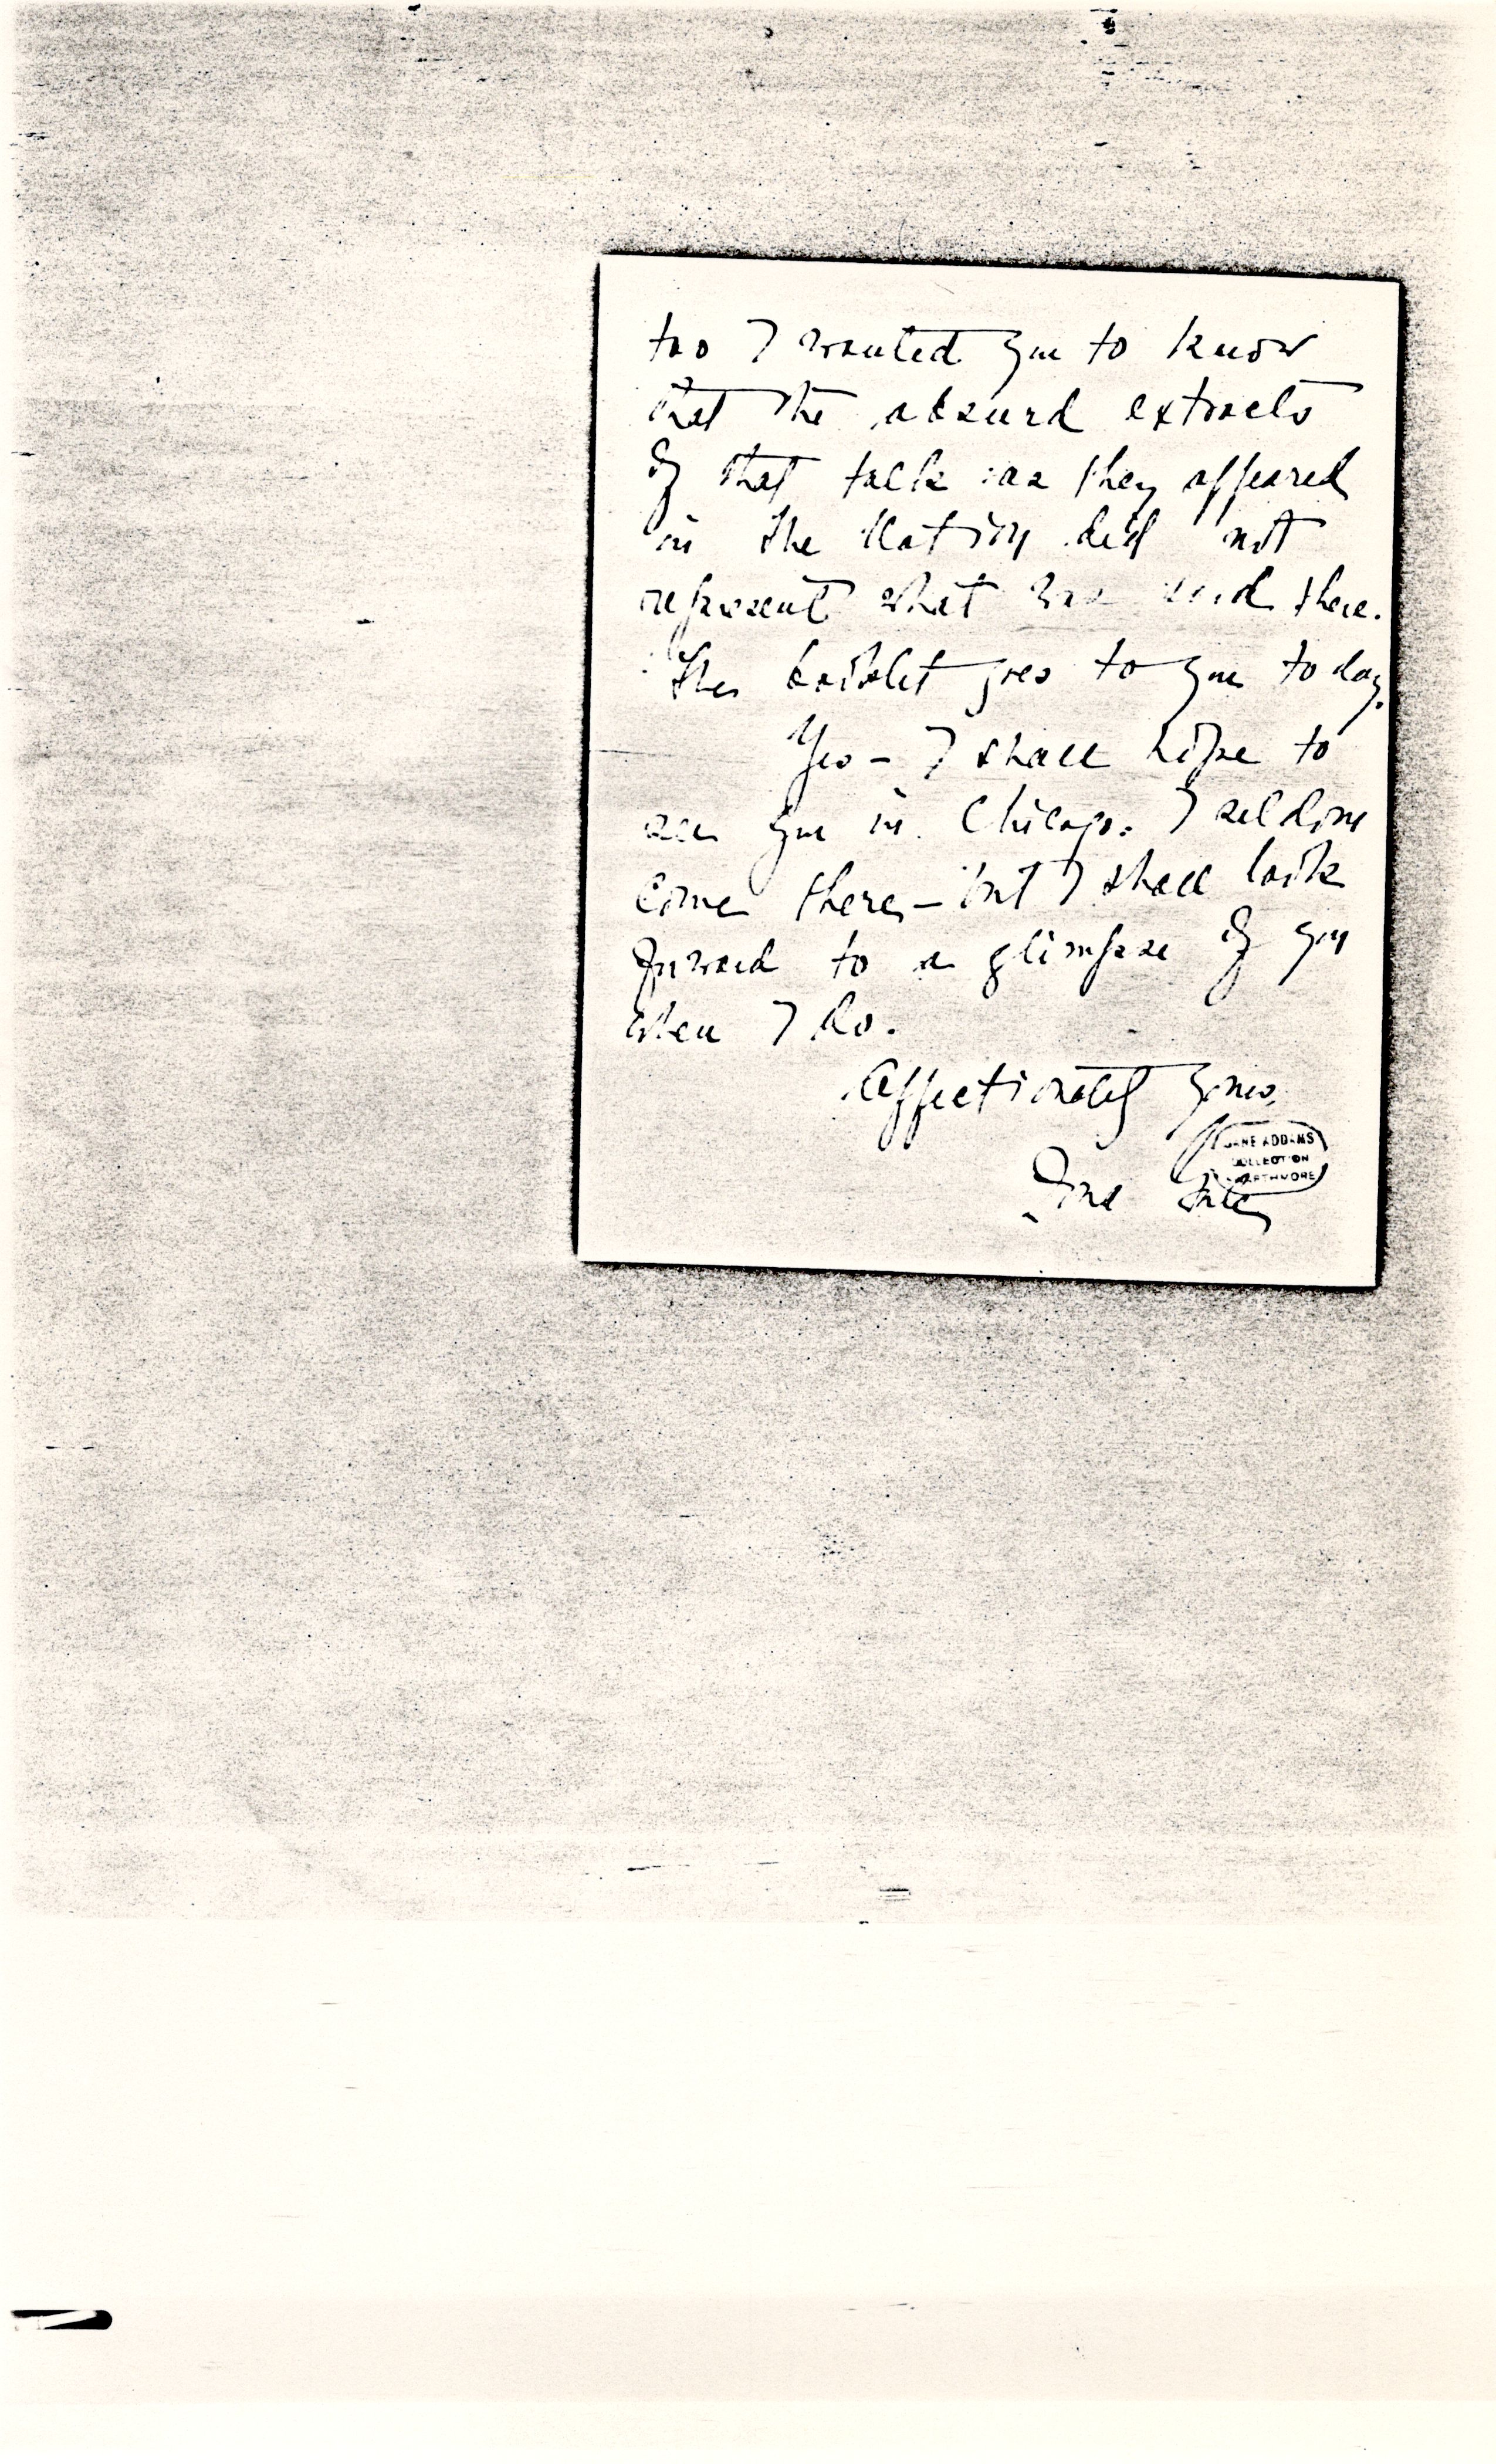 too I wanted you to know
that the absurd extracts
of that talk as they appeared
in the Nation did not
represent what was said there.
The booklet goes to you today.
Yes – I shall hope to
see you in Chicago. I seldom
come there – but I shall look
forward to a glimpse of you
when I do.
Affectionately yours,
JANE ADDAMS
COLLECTION
SWARTHMORE
Zona Gale